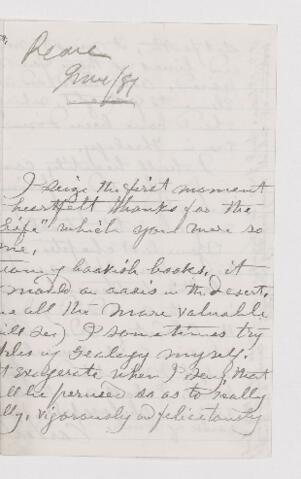 I seize the first moment
heartfelt thanks for the
Life" which you were so
me.
of bookish books, it
an oasis in the desert,
all the more valuable
I sometimes try
in geology myself.
exagerate when I say, that
be perused so as to really
vigorously and felicitously